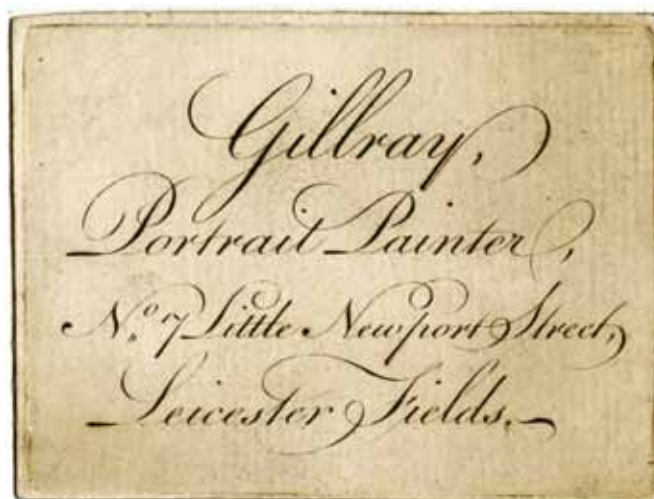 Gillray,
Portrait Painter,
No. 7 Little Newport Street,
Leicester Fields.